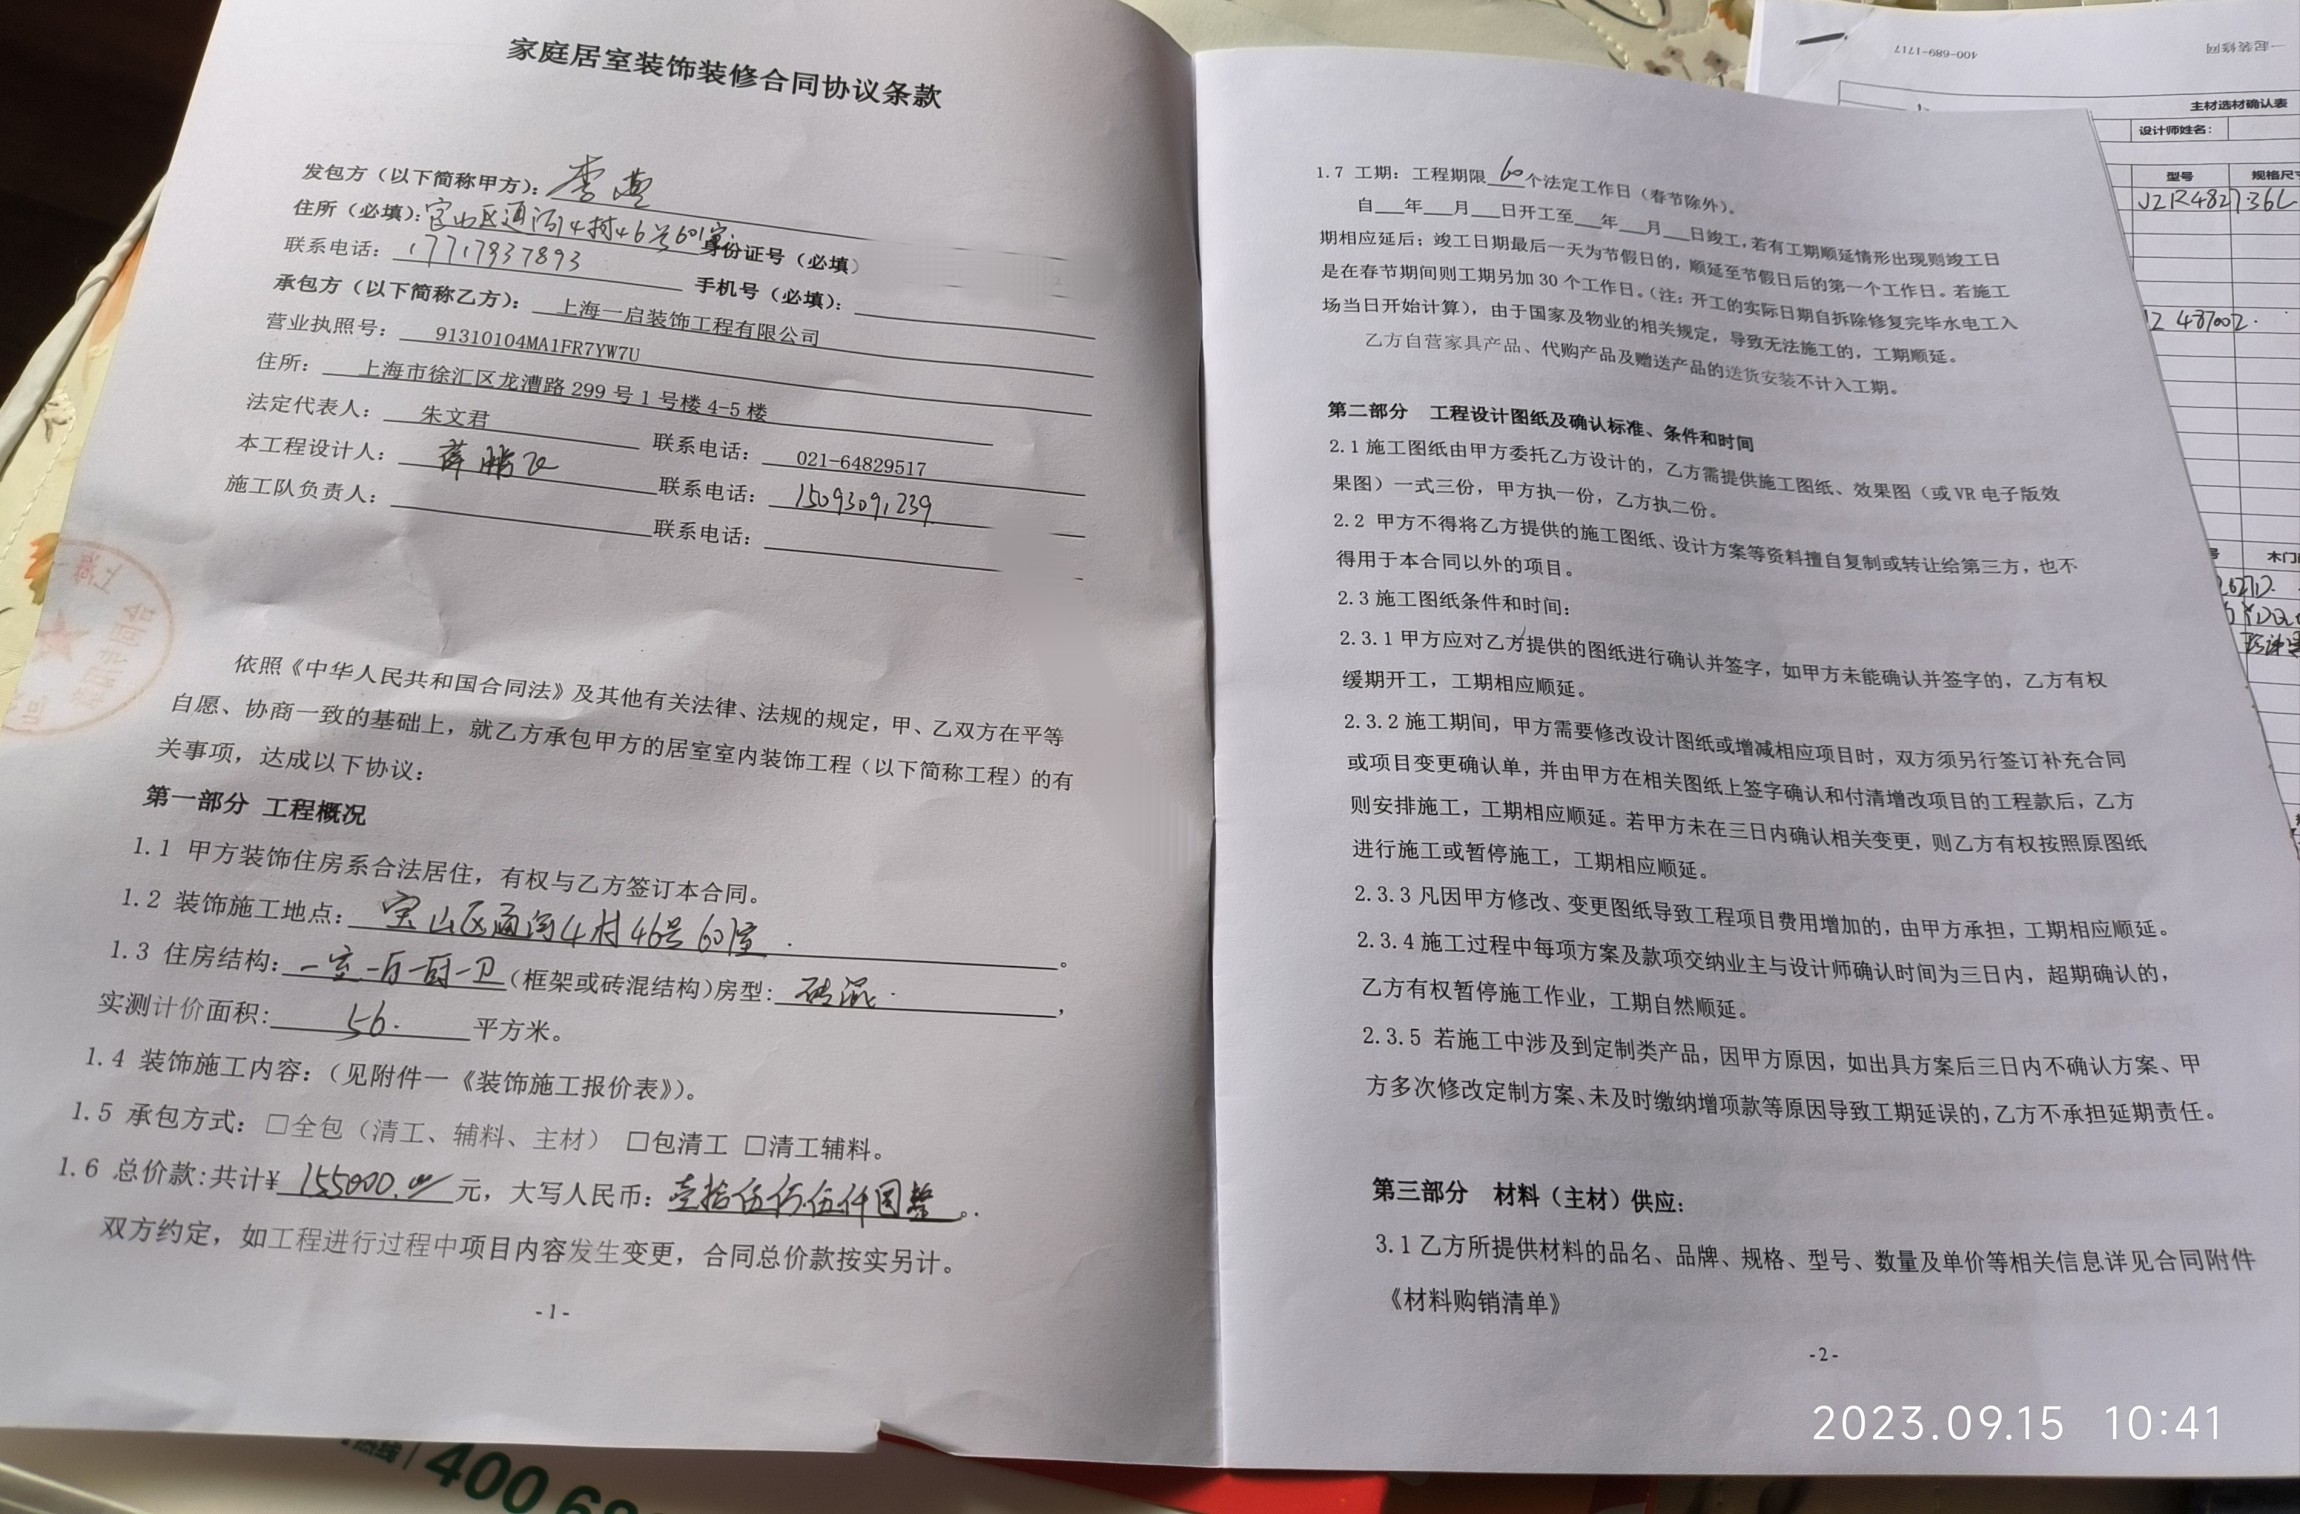 家庭居室装饰装修合同协议条款
发包方（以下简称甲方）：李燕
住所（必填）：宝山区通河4村46号601室 身份证号（必填）
联系电话：17717937893 手机号（必填）：
承包方（以下简称乙方）：上海一启装饰工程有限公司
营业执照号：91310104MA1FR7YW7U
住所：上海市徐汇区龙漕路299号1号楼4-5楼
法定代表人：朱文君 联系电话：021-64829517
本工程设计人：薛鹏飞 联系电话：15093091239
施工队负责人： 联系电话：
依照《中华人民共和国合同法》及其他有关法律、法规的规定，甲、乙双方在平等
自愿、协商一致的基础上，就乙方承包甲方的居室室内装饰工程（以下简称工程）的有
关事项，达成以下协议：
第一部分 工程概况
1.1 甲方装饰住房系合法居住，有权与乙方签订本合同。
1.2 装饰施工地点：宝山区通河4村46号601室。
1.3 住房结构：一室一厅一厨一卫（框架或砖混结构）房型：砖混，
实测计价面积：56. 平方米。
1.4 装饰施工内容：（见附件一《装饰施工报价表》）。
1.5 承包方式：□全包（清工、辅料、主材） □包清工 □清工辅料。
1.6 总价款：共计¥155000.00元，大写人民币：壹拾伍万伍仟圆整。
双方约定，如工程进行过程中项目内容发生变更，合同总价款按实另计。
-1-
1.7 工期：工程期限60个法定工作日（春节除外）。
自___年___月___日开工至___年___月___日竣工，若有工期顺延情形出现则竣工日
期相应延后；竣工日期最后一天为节假日的，顺延至节假日后的第一个工作日。若施工
是在春节期间则工期另加30个工作日。（注：开工的实际日期自拆除修复完毕水电工入
场当日开始计算），由于国家及物业的相关规定，导致无法施工的，工期顺延。
乙方自营家具产品、代购产品及赠送产品的送货安装不计入工期。
第二部分 工程设计图纸及确认标准、条件和时间
2.1 施工图纸由甲方委托乙方设计的，乙方需提供施工图纸、效果图（或VR电子版效
果图）一式三份，甲方执一份，乙方执二份。
2.2 甲方不得将乙方提供的施工图纸、设计方案等资料擅自复制或转让给第三方，也不
得用于本合同以外的项目。
2.3 施工图纸条件和时间：
2.3.1 甲方应对乙方提供的图纸进行确认并签字，如甲方未能确认并签字的，乙方有权
缓期开工，工期相应顺延。
2.3.2 施工期间，甲方需要修改设计图纸或增减相应项目时，双方须另行签订补充合同
或项目变更确认单，并由甲方在相关图纸上签字确认和付清增改项目的工程款后，乙方
则安排施工，工期相应顺延。若甲方未在三日内确认相关变更，则乙方有权按照原图纸
进行施工或暂停施工，工期相应顺延。
2.3.3 凡因甲方修改、变更图纸导致工程项目费用增加的，由甲方承担，工期相应顺延。
2.3.4 施工过程中每项方案及款项交纳业主与设计师确认时间为三日内，超期确认的，
乙方有权暂停施工作业，工期自然顺延。
2.3.5 若施工中涉及到定制类产品，因甲方原因，如出具方案后三日内不确认方案、甲
方多次修改定制方案、未及时缴纳增项款等原因导致工期延误的，乙方不承担延期责任。
第三部分 材料（主材）供应：
3.1 乙方所提供材料的品名、品牌、规格、型号、数量及单价等相关信息详见合同附件
《材料购销清单》
-2-
400-689-1717 一起装修网
主材选材确认表
设计师姓名：
型号 规格尺寸
木门
热线 400 68
2023.09.15 10:41